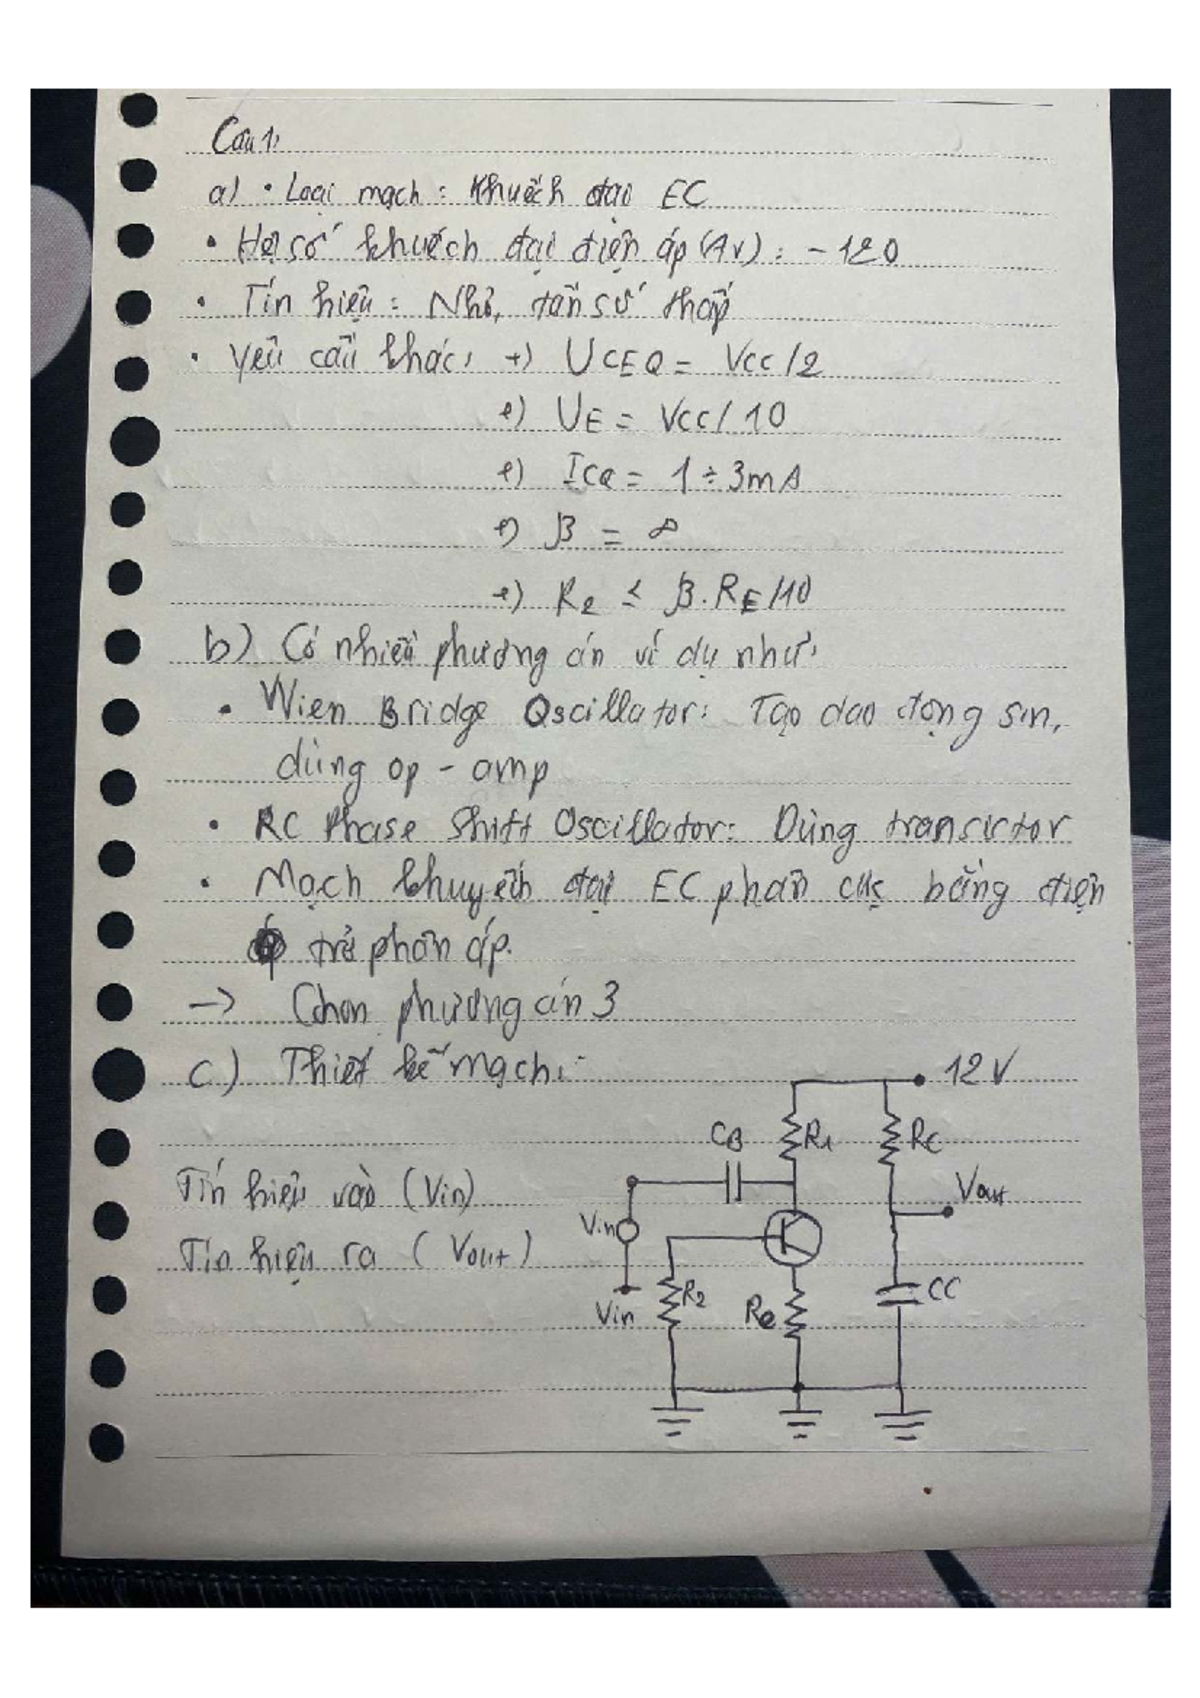 Câu 1:
a) • Loại mạch: Khuếch đại EC
• Hệ số khuếch đại điện áp (Av): - 120
• Tín hiệu: Nhỏ, tần số thấp
• Yêu cầu khác: +) UCEQ = Vcc/2
+) UE = Vcc/10
+) ICQ = 1 ÷ 3mA
+) β = ∞
+) R2 ≤ β.RE/10
b) Có nhiều phương án ví dụ như:
• Wien Bridge Oscillator: Tạo dao động sin,
dùng op-amp
• RC Phase Shift Oscillator: Dùng transictor
• Mạch khuyếch đại EC phân cực bằng điện
trở phân áp.
→ Chọn phương án 3
c) Thiết kế mạch:
12V
CB R1 RC
Tín hiệu vào (Vin)
Vout
Vin
Tín hiệu ra (Vout)
R2 Re CC
Vin